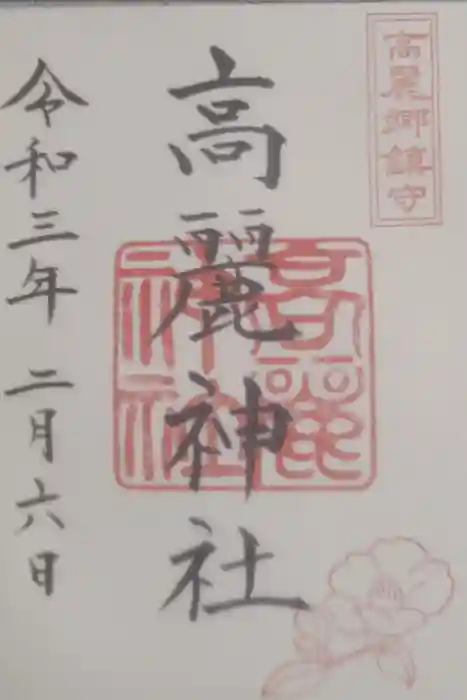 高麗郷鎮守
高麗神社
高麗
神社
令和三年 二月六日